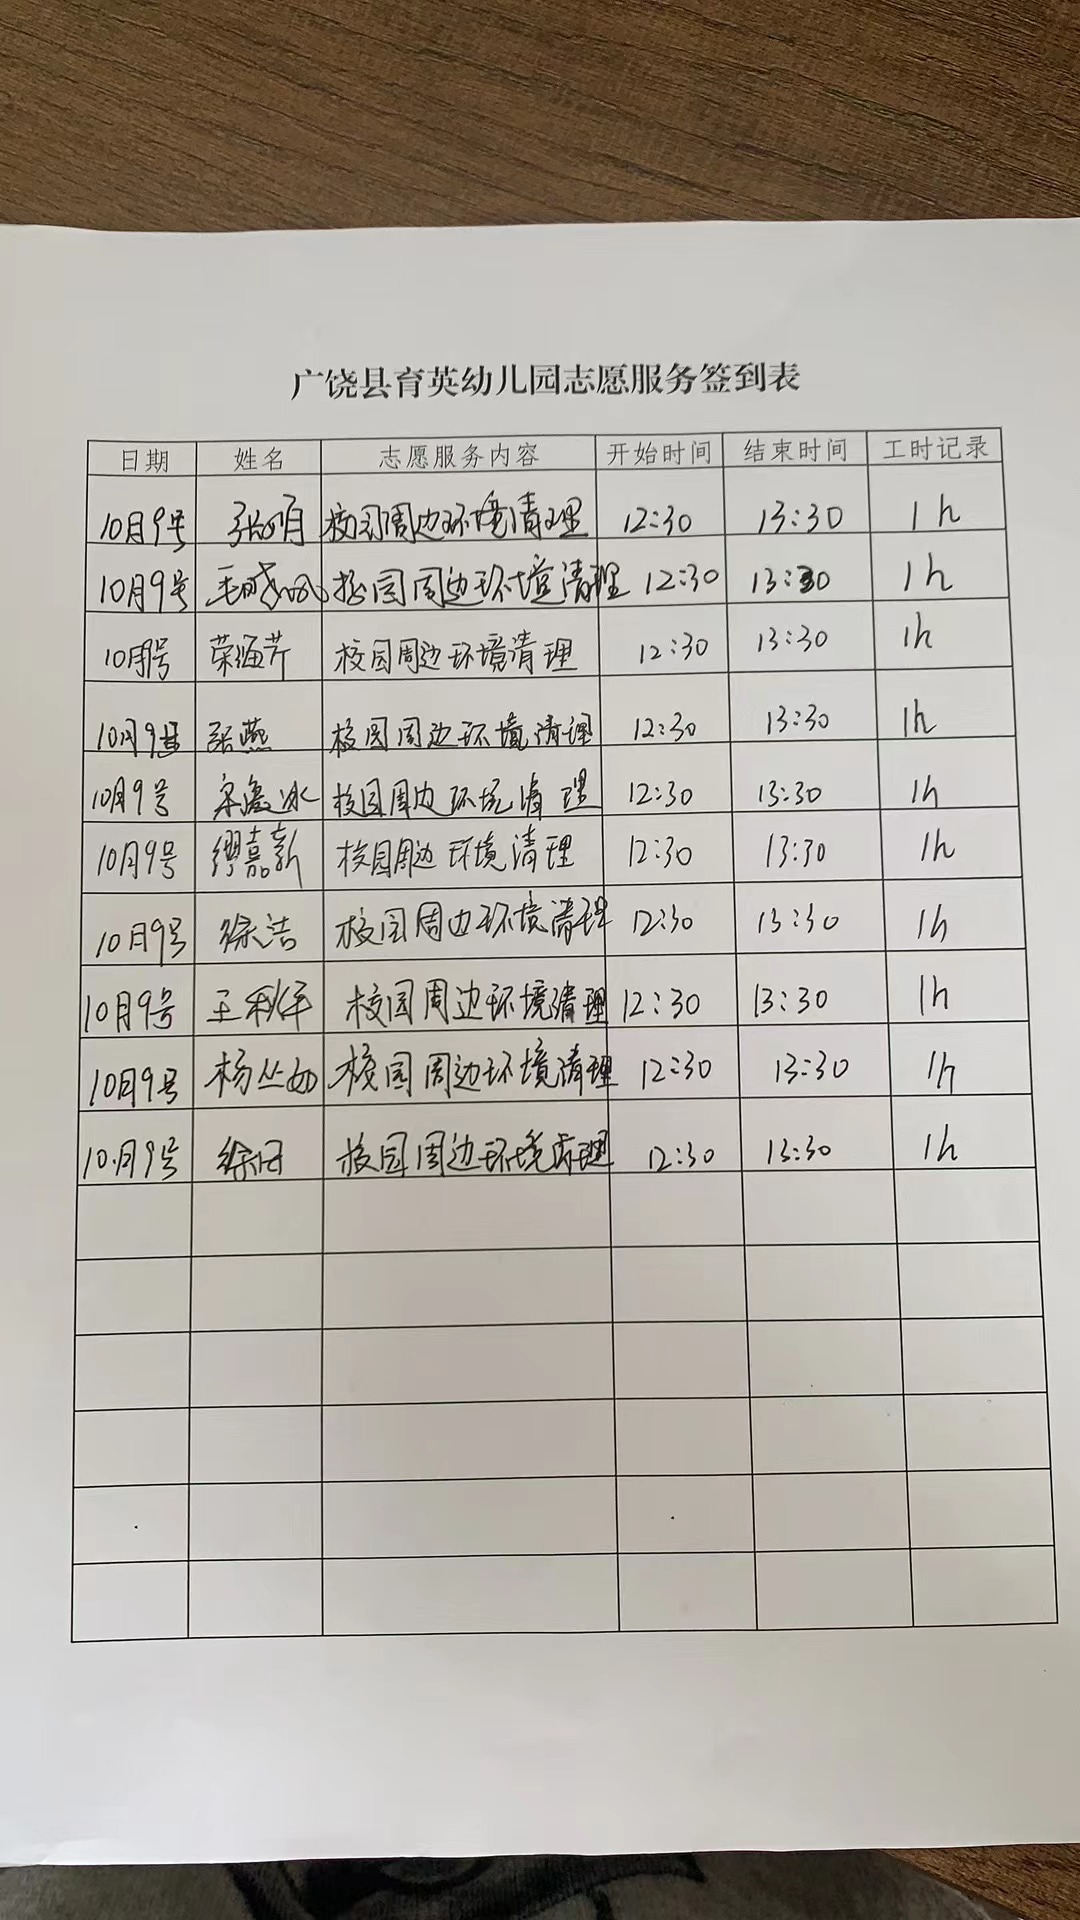 广饶县育英幼儿园志愿服务签到表
日期 姓名 志愿服务内容 开始时间 结束时间 工时记录
10月9号 校园周边环境清理 12:30 13:30 1h
10月9号 校园周边环境清理 12:30 13:30 1h
10月9号 荣海芹 校园周边环境清理 12:30 13:30 1h
10月9号 张燕 校园周边环境清理 12:30 13:30 1h
10月9号 校园周边环境清理 12:30 13:30 1h
10月9号 缪嘉新 校园周边环境清理 12:30 13:30 1h
10月9号 徐洁 校园周边环境清理 12:30 13:30 1h
10月9号 校园周边环境清理 12:30 13:30 1h
10月9号 杨丛如 校园周边环境清理 12:30 13:30 1h
10月9号 校园周边环境清理 12:30 13:30 1h